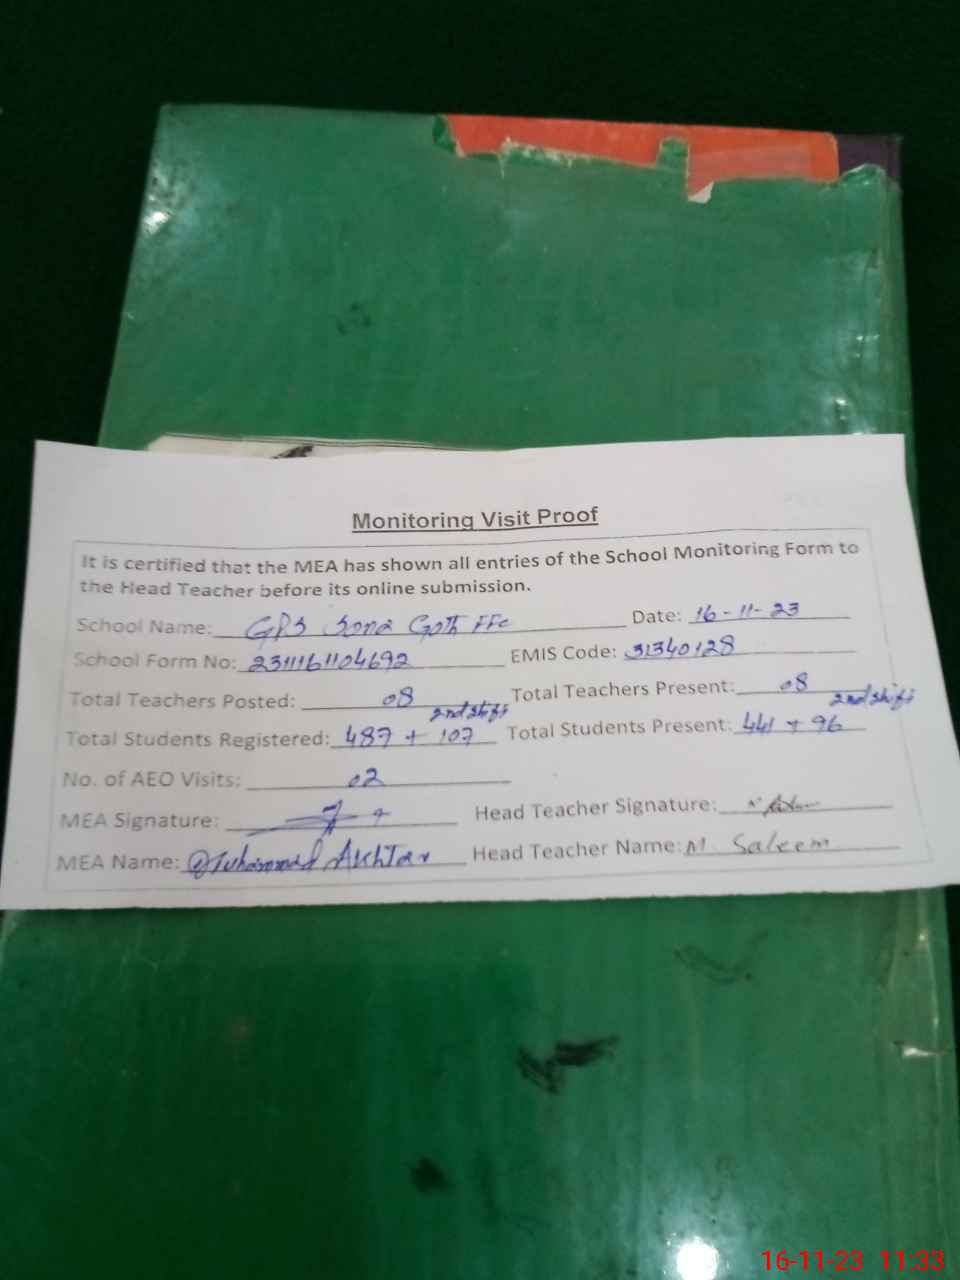 Monitoring Visit Proof
It is certified that the MEA has shown all entries of the School Monitoring Form to
the Head Teacher before its online submission.
School Name: GPS Sona Goth FFC Date: 16-11-23
School Form No: 2311161104692 EMIS Code: 31340128
Total Teachers Posted: 08 Total Teachers Present: 08
2nd shift 2nd shift
Total Students Registered: 487 + 107 Total Students Present: 441 + 96
No. of AEO Visits: 02
MEA Signature: Head Teacher Signature:
MEA Name: Muhammad Akhtar Head Teacher Name: M. Saleem
16-11-23 11:33